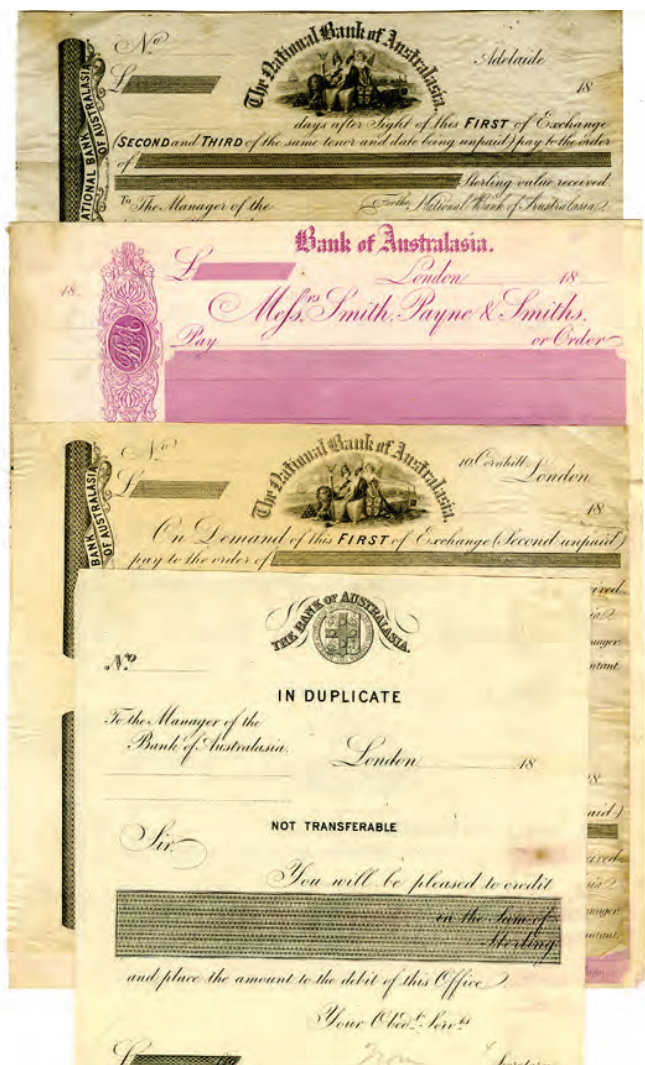 The National Bank of Australasia.
No
Adelaide
£
18
NATIONAL BANK
OF AUSTRALASIA
days after Sight of this FIRST of Exchange
(SECOND and THIRD of the same tenor and date being unpaid) pay to the order
of
Sterling value received.
To The Manager of the
For the National Bank of Australasia
Bank of Australasia.
£
18
London 18
Messrs Smith, Payne & Smiths.
BA
Pay or Order
The National Bank of Australasia.
No
10, Cornhill, London
£
18
BANK
OF AUSTRALASIA
On Demand of this FIRST of Exchange (Second unpaid)
pay to the order of
THE BANK OF AUSTRALASIA.
No
IN DUPLICATE
To the Manager of the
Bank of Australasia.
London 18
NOT TRANSFERABLE
Sir
You will be pleased to credit
in the Sum of
Sterling
and place the amount to the debit of this Office
Your Obedt. Servts
£